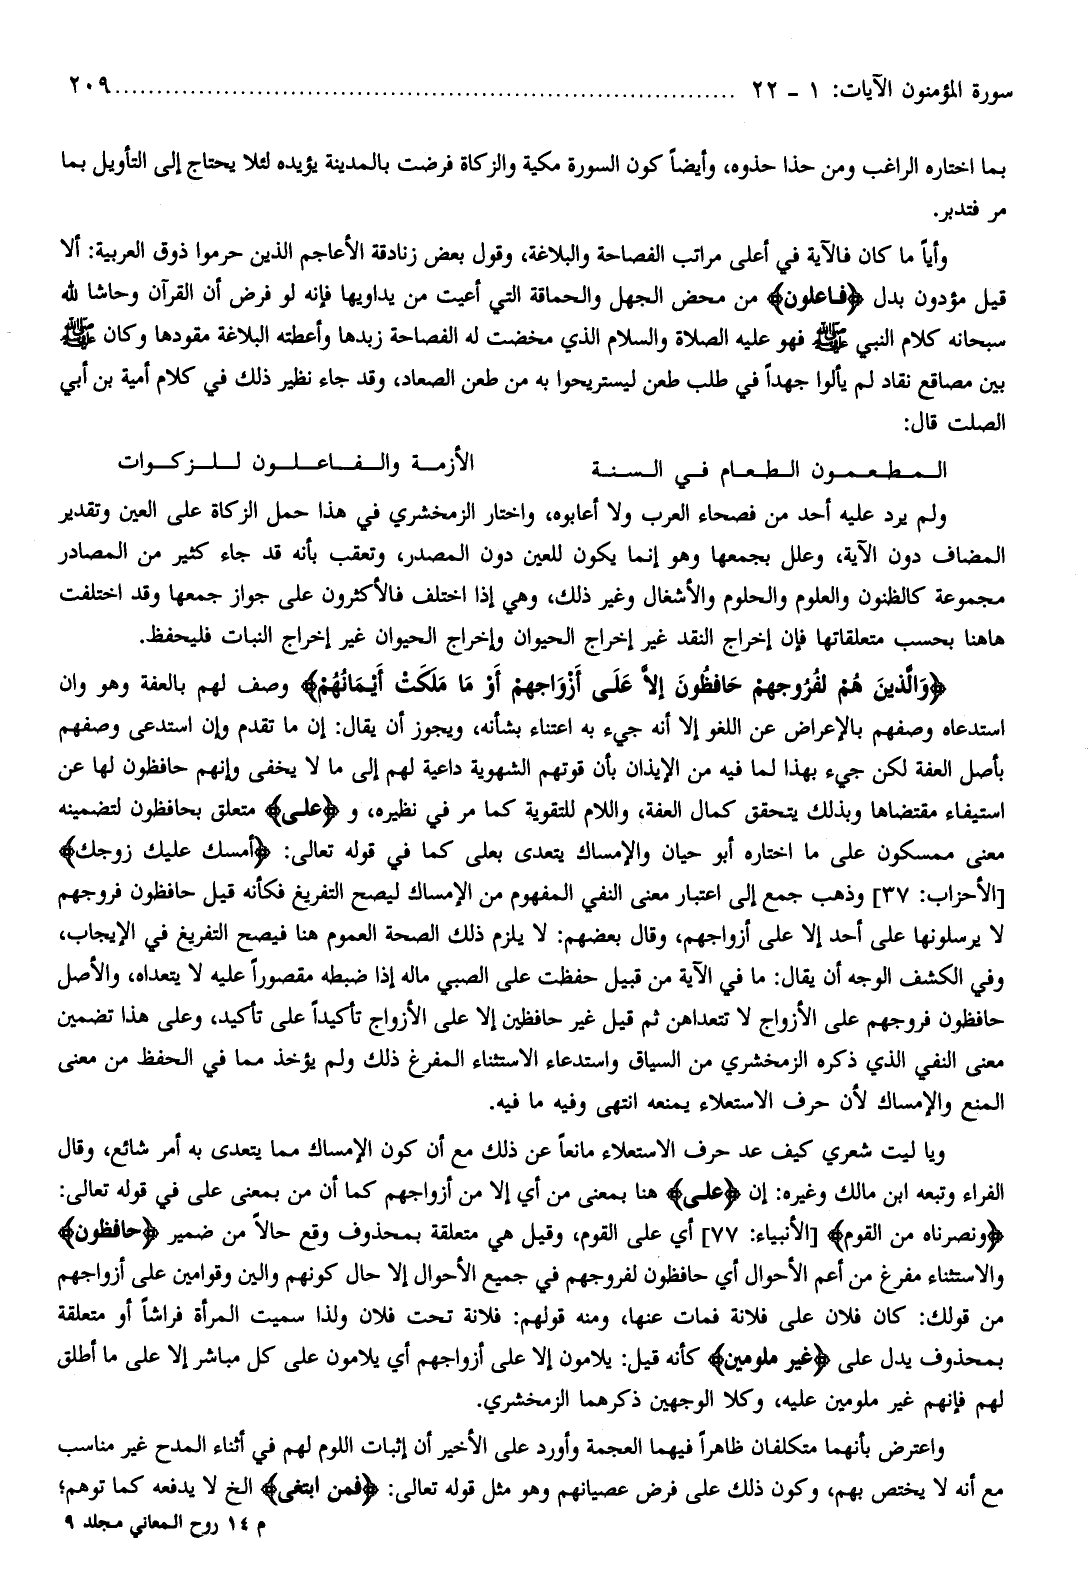 سورة المؤمنون الآيات: ١ - ٢٢ ........................................ ٢٠٩
بما اختاره الراغب ومن حذا حذوه، وأيضاً كون السورة مكية والزكاة فرضت بالمدينة يؤيده لئلا يحتاج إلى التأويل بما
مر فتدبر.
وأياً ما كان فالآية في أعلى مراتب الفصاحة والبلاغة، وقول بعض زنادقة الأعاجم الذين حرموا ذوق العربية: ألا
قيل مؤدون بدل ﴿فاعلون﴾ من محض الجهل والحماقة التي أعيت من يداويها فإنه لو فرض أن القرآن وحاشا لله
سبحانه كلام النبي ﷺ فهو عليه الصلاة والسلام الذي مخضت له الفصاحة زبدها وأعطته البلاغة مقودها وكان ﷺ
بين مصاقع نقاد لم يألوا جهداً في طلب طعن ليستريحوا به من طعن الصعاد، وقد جاء نظير ذلك في كلام أمية بن أبي
الصلت قال:
المطعمون الطعام في السنة الأزمة والفاعلون للزكوات
ولم يرد عليه أحد من فصحاء العرب ولا أعابوه، واختار الزمخشري في هذا حمل الزكاة على العين وتقدير
المضاف دون الآية، وعلل بجمعها وهو إنما يكون للعين دون المصدر، وتعقب بأنه قد جاء كثير من المصادر
مجموعة كالظنون والعلوم والحلوم والأشغال وغير ذلك، وهي إذا اختلف فالأكثرون على جواز جمعها وقد اختلفت
هاهنا بحسب متعلقاتها فإن إخراج النقد غير إخراج الحيوان وإخراج الحيوان غير إخراج النبات فليحفظ.
﴿وَالَّذينَ هُمْ لفُرُوجهمْ حَافظُونَ إلاَّ عَلَى أَزْوَاجهمْ أَوْ مَا مَلَكَتْ أَيْمَانُهُمْ﴾ وصف لهم بالعفة وهو وان
استدعاه وصفهم بالإعراض عن اللغو إلا أنه جيء به اعتناء بشأنه، ويجوز أن يقال: إن ما تقدم وإن استدعى وصفهم
بأصل العفة لكن جيء بهذا لما فيه من الإيذان بأن قوتهم الشهوية داعية لهم إلى ما لا يخفى وإنهم حافظون لها عن
استيفاء مقتضاها وبذلك يتحقق كمال العفة، واللام للتقوية كما مر في نظيره، و ﴿على﴾ متعلق بحافظون لتضمينه
معنى ممسكون على ما اختاره أبو حيان والإمساك يتعدى بعلى كما في قوله تعالى: ﴿أمسك عليك زوجك﴾
[الأحزاب: ٣٧] وذهب جمع إلى اعتبار معنى النفي المفهوم من الإمساك ليصح التفريغ فكأنه قيل حافظون فروجهم
لا يرسلونها على أحد إلا على أزواجهم، وقال بعضهم: لا يلزم ذلك الصحة العموم هنا فيصح التفريغ في الإيجاب،
وفي الكشف الوجه أن يقال: ما في الآية من قبيل حفظت على الصبي ماله إذا ضبطه مقصوراً عليه لا يتعداه، والأصل
حافظون فروجهم على الأزواج لا تتعداهن ثم قيل غير حافظين إلا على الأزواج تأكيداً على تأكيد، وعلى هذا تضمين
معنى النفي الذي ذكره الزمخشري من السياق واستدعاء الاستثناء المفرغ ذلك ولم يؤخذ مما في الحفظ من معنى
المنع والإمساك لأن حرف الاستعلاء يمنعه انتهى وفيه ما فيه.
ويا ليت شعري كيف عد حرف الاستعلاء مانعاً عن ذلك مع أن كون الإمساك مما يتعدى به أمر شائع، وقال
الفراء وتبعه ابن مالك وغيره: إن ﴿على﴾ هنا بمعنى من أي إلا من أزواجهم كما أن من بمعنى على في قوله تعالى:
﴿ونصرناه من القوم﴾ [الأنبياء: ٧٧] أي على القوم، وقيل هي متعلقة بمحذوف وقع حالاً من ضمير ﴿حافظون﴾
والاستثناء مفرغ من أعم الأحوال أي حافظون لفروجهم في جميع الأحوال إلا حال كونهم والين وقوامين على أزواجهم
من قولك: كان فلان على فلانة فمات عنها، ومنه قولهم: فلانة تحت فلان ولذا سميت المرأة فراشاً أو متعلقة
بمحذوف يدل على ﴿غير ملومين﴾ كأنه قيل: يلامون إلا على أزواجهم أي يلامون على كل مباشر إلا على ما أطلق
لهم فإنهم غير ملومين عليه، وكلا الوجهين ذكرهما الزمخشري.
واعترض بأنهما متكلفان ظاهراً فيهما العجمة وأورد على الأخير أن إثبات اللوم لهم في أثناء المدح غير مناسب
مع أنه لا يختص بهم، وكون ذلك على فرض عصيانهم وهو مثل قوله تعالى: ﴿فمن ابتغى﴾ الخ لا يدفعه كما توهم؛
م ١٤ روح المعاني مجلد ٩